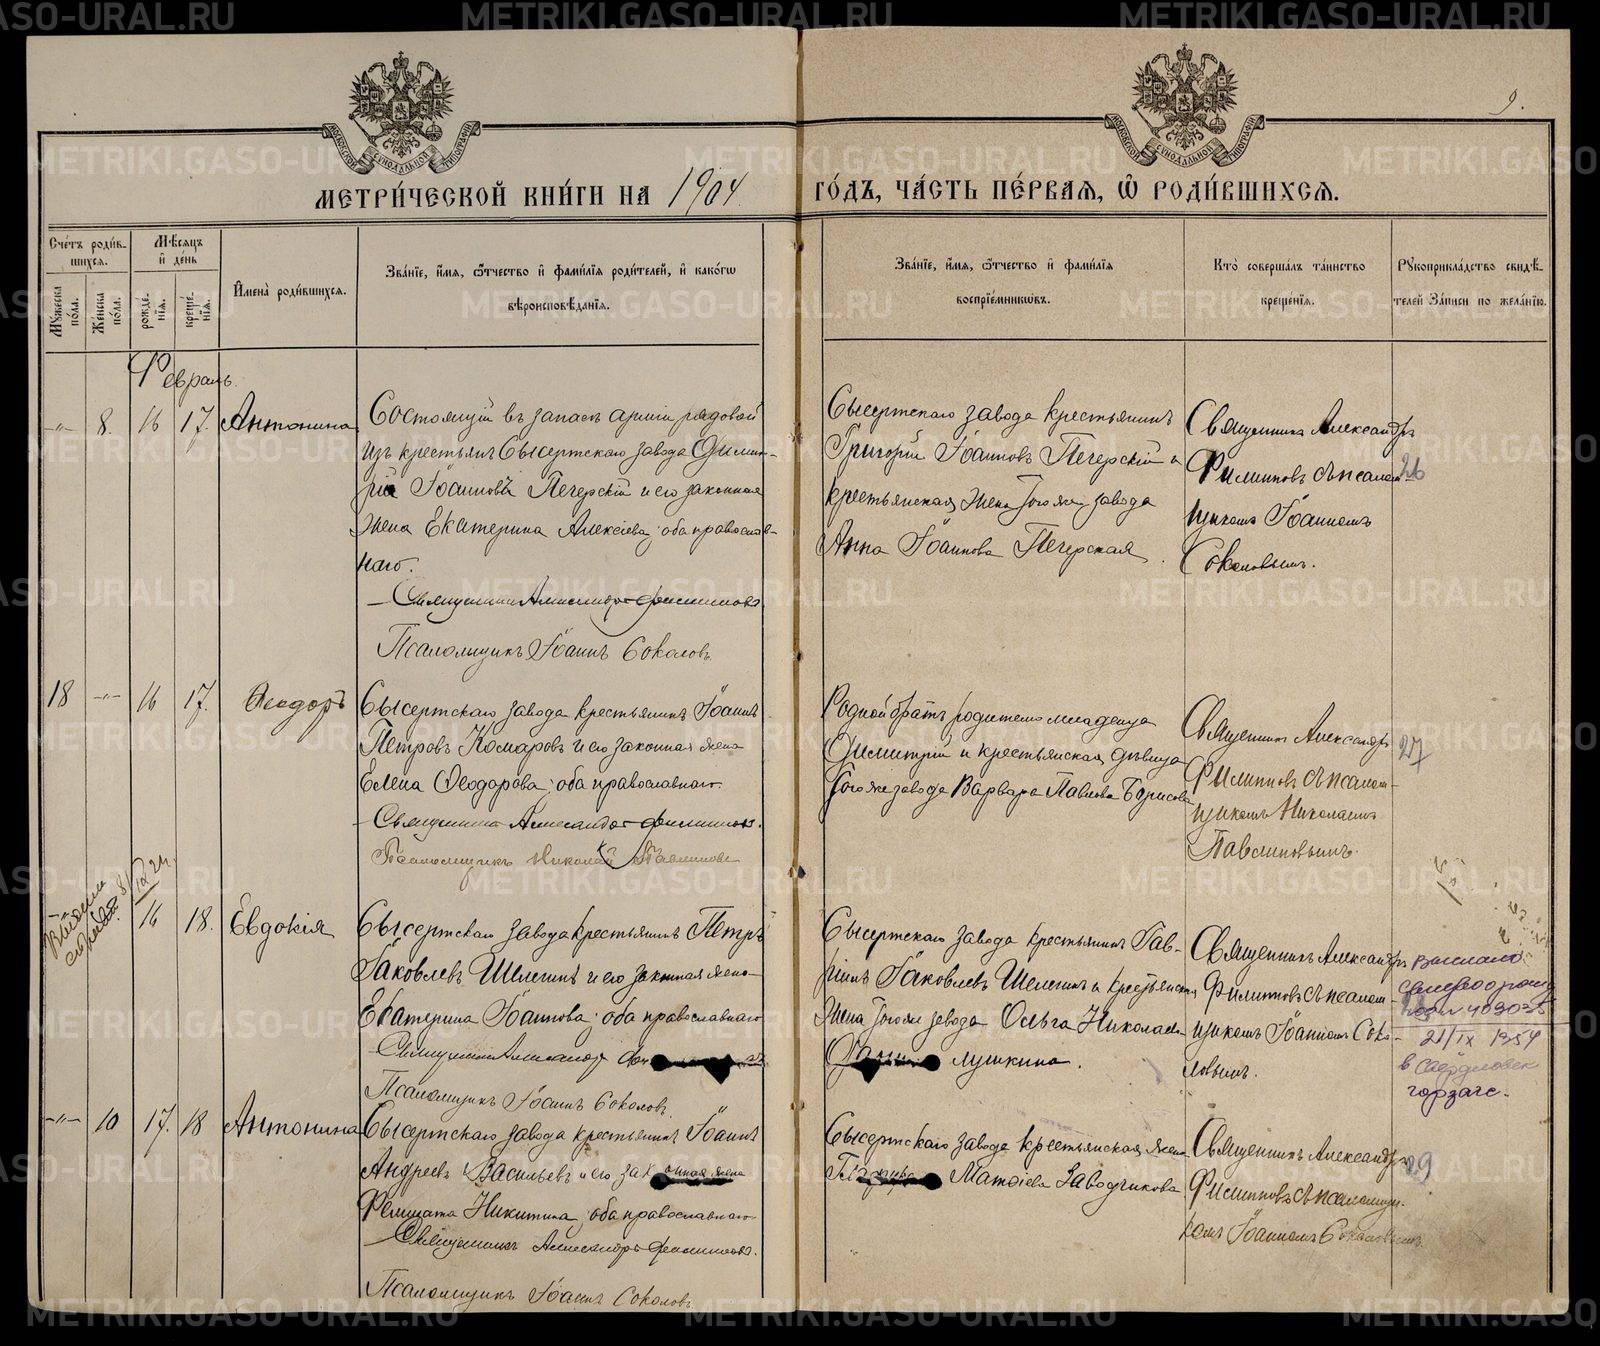 METRIKI.GASO-URAL.RU
9.
МОСКОВСКОЙ СѴНОДАЛЬНОЙ ТИПОГРАФІИ
МЕТРИ́ЧЕСКОЙ КНИ́ГИ НА 1904 ГО́ДЪ, ЧА́СТЬ ПЕ́РВАЯ, Ѿ РОДИ́ВШИХСЯ.
Сче́тъ роди́в-
шихся.
Мꙋжеска по́ла.
Же́нска по́ла.
Мѣ́сяцъ
и де́нь
рожде́-
нія.
креще́-
нія.
Имена̀ роди́вшихся.
Зва́ніе, и́мя, о́тчество и фами́лія роди́телей, и како́гѡ
вѣроисповѣ́данія.
Зва́ніе, и́мя, о́тчество и фами́лія
воспріе́мниковъ.
Кто̀ соверша́лъ та́инство
креще́нія.
Рꙋкоприкла́дство свидѣ́-
телей за́писи по жела́нію.
Февраль.
-"- 8. 16 17. Антонина
Состоящій въ запасѣ арміи рядовой
изъ крестьянъ Сысертскаго завода Димит-
рій Іоанновъ Печерскій и его законная
жена Екатерина Алексіева; оба православ-
наго.
Священникъ Александръ Филипповъ
Псаломщикъ Іоаннъ Соколовъ
Сысертскаго завода крестьянинъ
Григорій Іоанновъ Печерскій и
крестьянская жена того же завода
Анна Іоаннова Печерская.
Священникъ Александръ
Филипповъ съ псалом-
щикомъ Іоанномъ
Соколовымъ.
26
18 -"- 16 17. Ѳеодоръ
Сысертскаго завода крестьянинъ Іоаннъ
Петровъ Комаровъ и его законная жена
Елена Ѳеодорова; оба православнаго.
Священникъ Александръ Филипповъ.
Псаломщикъ Николай Павлиновъ
Родной братъ родителя младенца
Димитрій и крестьянская дѣвица
того же завода Варвара Павлова Борисова
Священникъ Александръ
Филипповъ съ псалом-
щикомъ Николаемъ
Павлиновымъ.
27
16 18. Евдокія
Сысертскаго завода крестьянинъ Петръ
Іаковлевъ Шелегинъ и его законная жена
Екатерина Іоаннова; оба православнаго
Священникъ Александръ
Псаломщикъ Іоаннъ Соколовъ.
Сысертскаго завода крестьянинъ Гав-
ріилъ Іаковлевъ Шелегинъ и крестьянская
жена того же завода Ольга Николаева
лушкина.
Священникъ Александръ
Филипповъ съ псалом-
щикомъ Іоанномъ Соко-
ловымъ.
Выслано
21/IX 1954
в Свердловск
горзагс.
-"- 10 17. 18 Антонина
Сысертскаго завода крестьянинъ Іоаннъ
Андреевъ Васильевъ и его законная жена
Фелицата Никитина; оба православнаго
Священникъ Александръ Филипповъ.
Псаломщикъ Іоаннъ Соколовъ
Сысертскаго завода крестьянская жена
Матѳіева Заводчикова
Священникъ Александръ
Филипповъ съ псаломщи-
комъ Іоанномъ Соколовымъ.
29